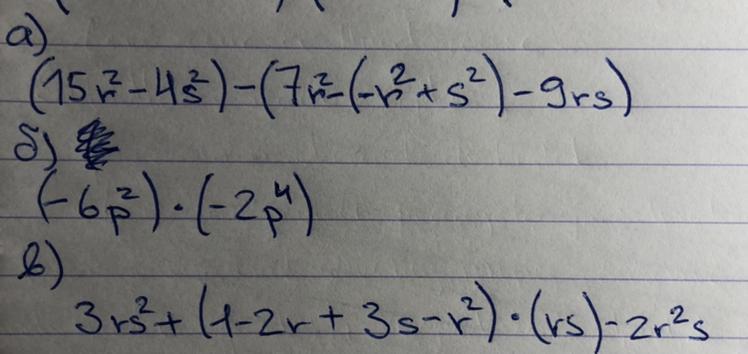 а)
(15r² - 4s²) - (7r² - (-r² + s²) - 9rs)
б)
(-6p²) · (-2p⁴)
в)
3rs² + (1 - 2r + 3s - r²) · (rs) - 2r²s